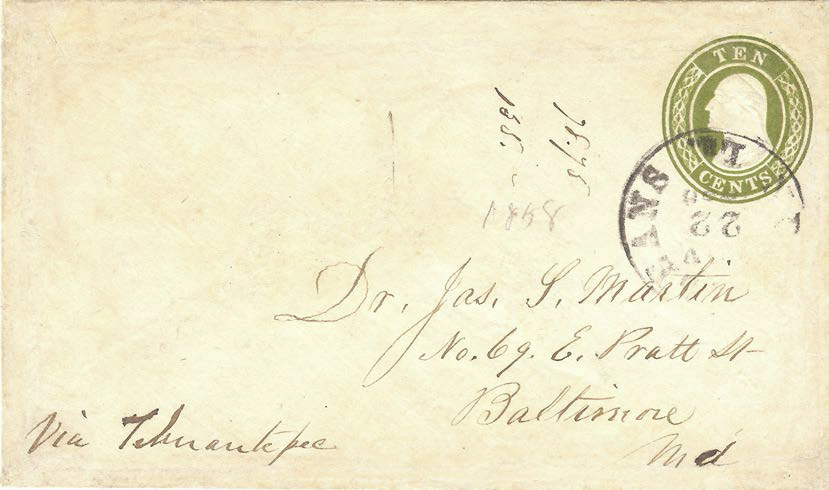 TEN
CENTS
ANS
La.
22
1858
Dr. Jas. S. Martin
No. 69. E. Pratt St
Baltimore
Md
Via Tehuantepec